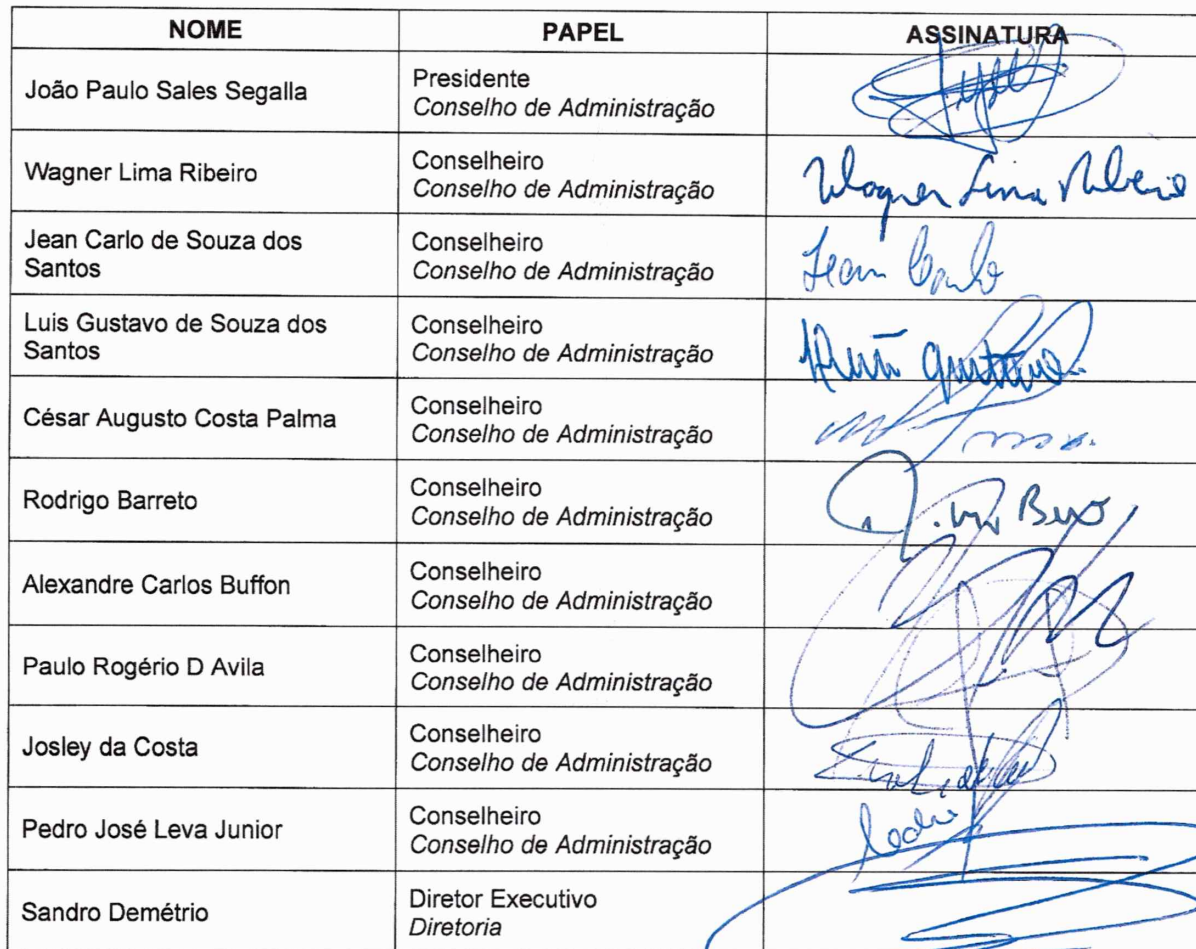 NOME PAPEL ASSINATURA
João Paulo Sales Segalla Presidente
Conselho de Administração
Wagner Lima Ribeiro Conselheiro
Conselho de Administração
Wagner Lima Ribeiro
Jean Carlo de Souza dos Conselheiro
Santos Conselho de Administração
Jean Carlo
Luis Gustavo de Souza dos Conselheiro
Santos Conselho de Administração
César Augusto Costa Palma Conselheiro
Conselho de Administração
Rodrigo Barreto Conselheiro
Conselho de Administração
Alexandre Carlos Buffon Conselheiro
Conselho de Administração
Paulo Rogério D Avila Conselheiro
Conselho de Administração
Josley da Costa Conselheiro
Conselho de Administração
Pedro José Leva Junior Conselheiro
Conselho de Administração
Sandro Demétrio Diretor Executivo
Diretoria